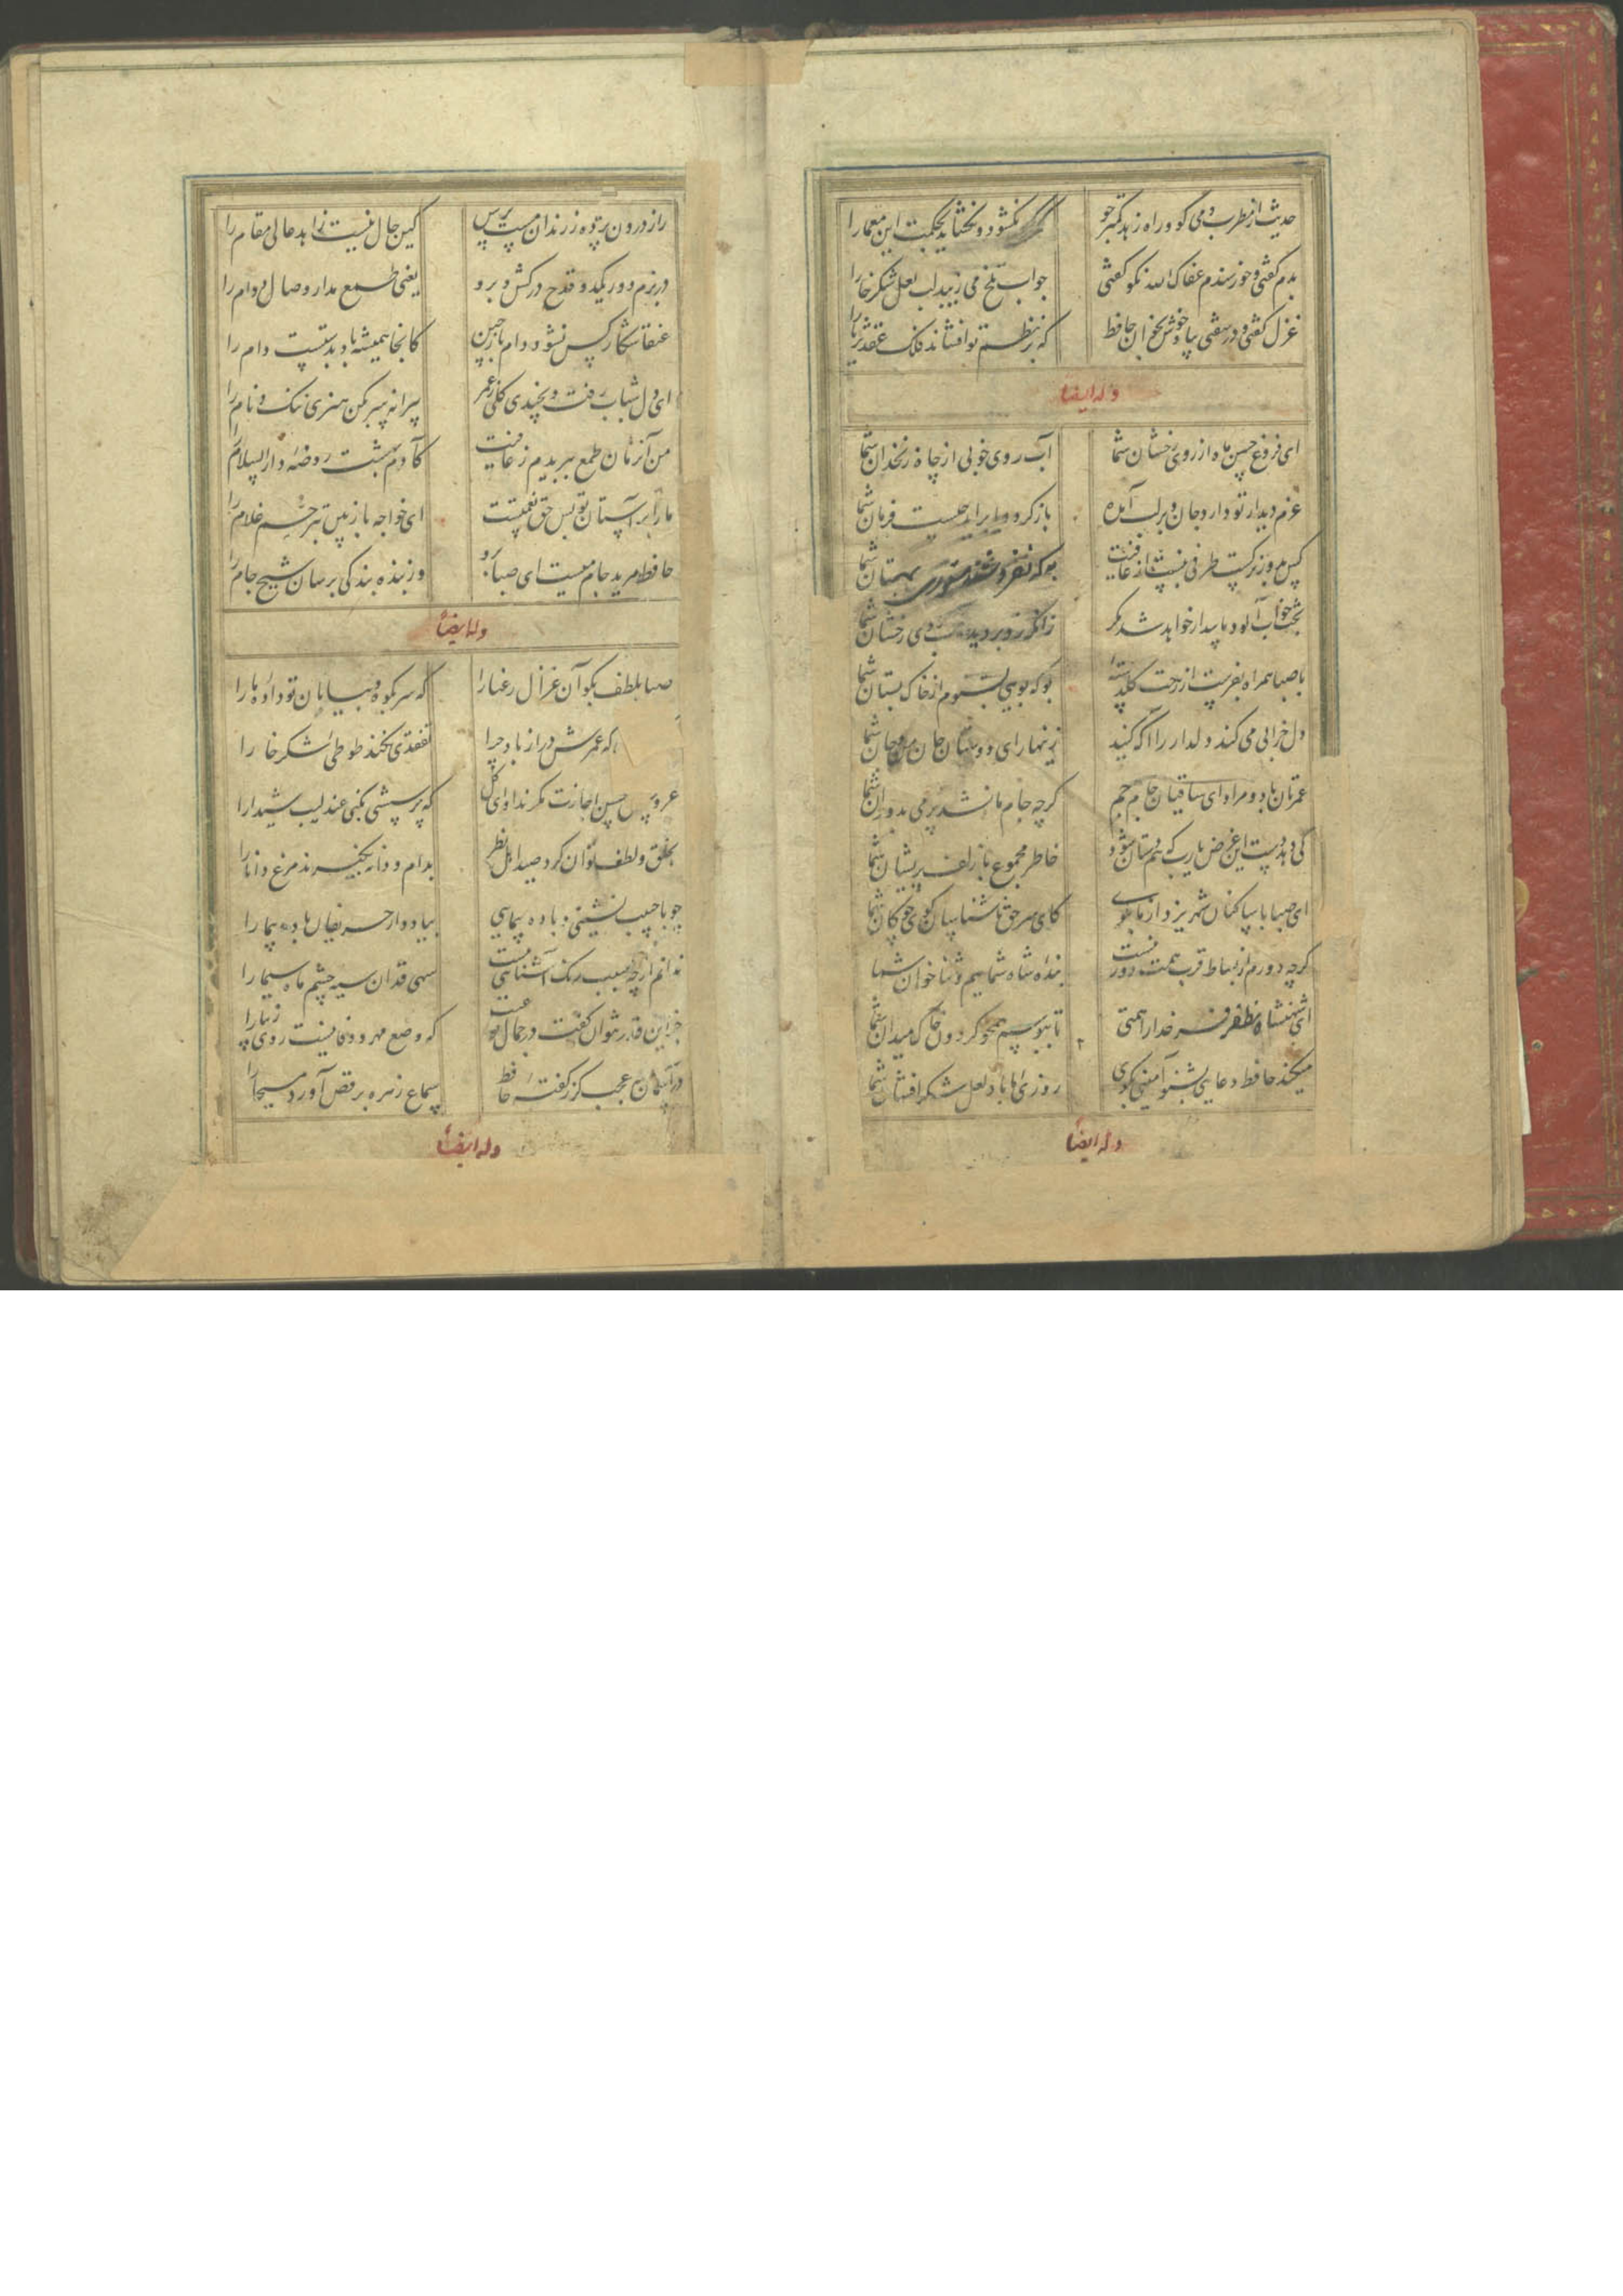 حدیث از مطرب و می گو و راز دهر کمتر جو که کس نگشود و نگشاید بحکمت این معما را
بدم گفتی و خورسندم عفاک الله نکو گفتی جواب تلخ می زیبد لب لعل شکرخا را
غزل گفتی و در سفتی بیا و خوش بخوان حافظ که بر نظم تو افشاند فلک عقد ثریا را
وله ایضا
ای فروغ حسن ماه از روی رخشان شما آب روی خوبی از چاه زنخدان شما
عزم دیدار تو دارد جان بر لب آمده باز گردد یا برآید چیست فرمان شما
کس بدور نرگست طرفی نبست از عافیت به که نفروشند مستوری بمستان شما
بخت خواب آلود ما بیدار خواهد شد مگر زانکه زد بر دیده روی رخشان شما
با صبا همراه بفرست از رخت گلدسته بو که بویی بشنوم از خاک بستان شما
دل خرابی می کند دلدار را آگه کنید زینهار ای دوستان جان من و جان شما
عمرتان باد و مراد ای ساقیان جام جم گرچه جام ما نشد پر می بدوران شما
کی دهد دست این غرض یارب که همدستان شوند خاطر مجموع ما زلف پریشان شما
ای صبا با ساکنان شهر یزد از ما بگوی کای سر حق ناشناسان گوی چوگان شما
گرچه دورم از بساط قرب همت دور نیست بنده شاه شماییم و ثنا خوان شما
ای شهنشاه مظفر فر خدا را همتی تا ببوسم همچو گردون خاک میدان شما
میکند حافظ دعایی بشنو آمینی بگوی روزی ما باد لعل شکر افشان شما
وله ایضا
راز درون پرده ز رندان مست پرس کین حال نیست زاهد عالی مقام را
در بزم دور یکدو قدح درکش و برو یعنی طمع مدار وصال دوام را
عنقا شکار کس نشود دام باز چین کانجا همیشه باد بدستست دام را
ای دل شباب رفت و نچیدی گلی ز عمر پیرانه سر بکن هنری ننک و نام را
من آنزمان طمع ببریدم ز عافیت کآدم بهشت روضه دار السلام را
ما را بر آستان تو بس حق خدمتست ای خواجه باز بین بترحم غلام را
حافظ مرید جام میست ای صبا برو وز بنده بندگی برسان شیخ جام را
وله ایضا
صبا بلطف بگو آن غزال رعنا را که سر بکوه و بیابان تو داده ما را
که عمرش دراز باد چرا تفقدی نکند طوطی شکرخا را
غرور حسن اجازت مگر نداد ای گل که پرسشی بکنی عندلیب شیدا را
بخلق و لطف توان کرد صید اهل نظر بدام و دانه نگیرند مرغ دانا را
چو با حبیب نشینی و باده پیمایی بیاد دار حریفان باده پیما را
ندانم از چه سبب رنک آشنایی نیست سهی قدان سیه چشم ماه سیما را
جز این قدر نتوان گفت در جمال تو عیب که وضع مهر و وفا نیست روی زیبا را
در آسمان چه عجب گر ز گفته حافظ سماع زهره برقص آورد مسیحا را
وله ایضا